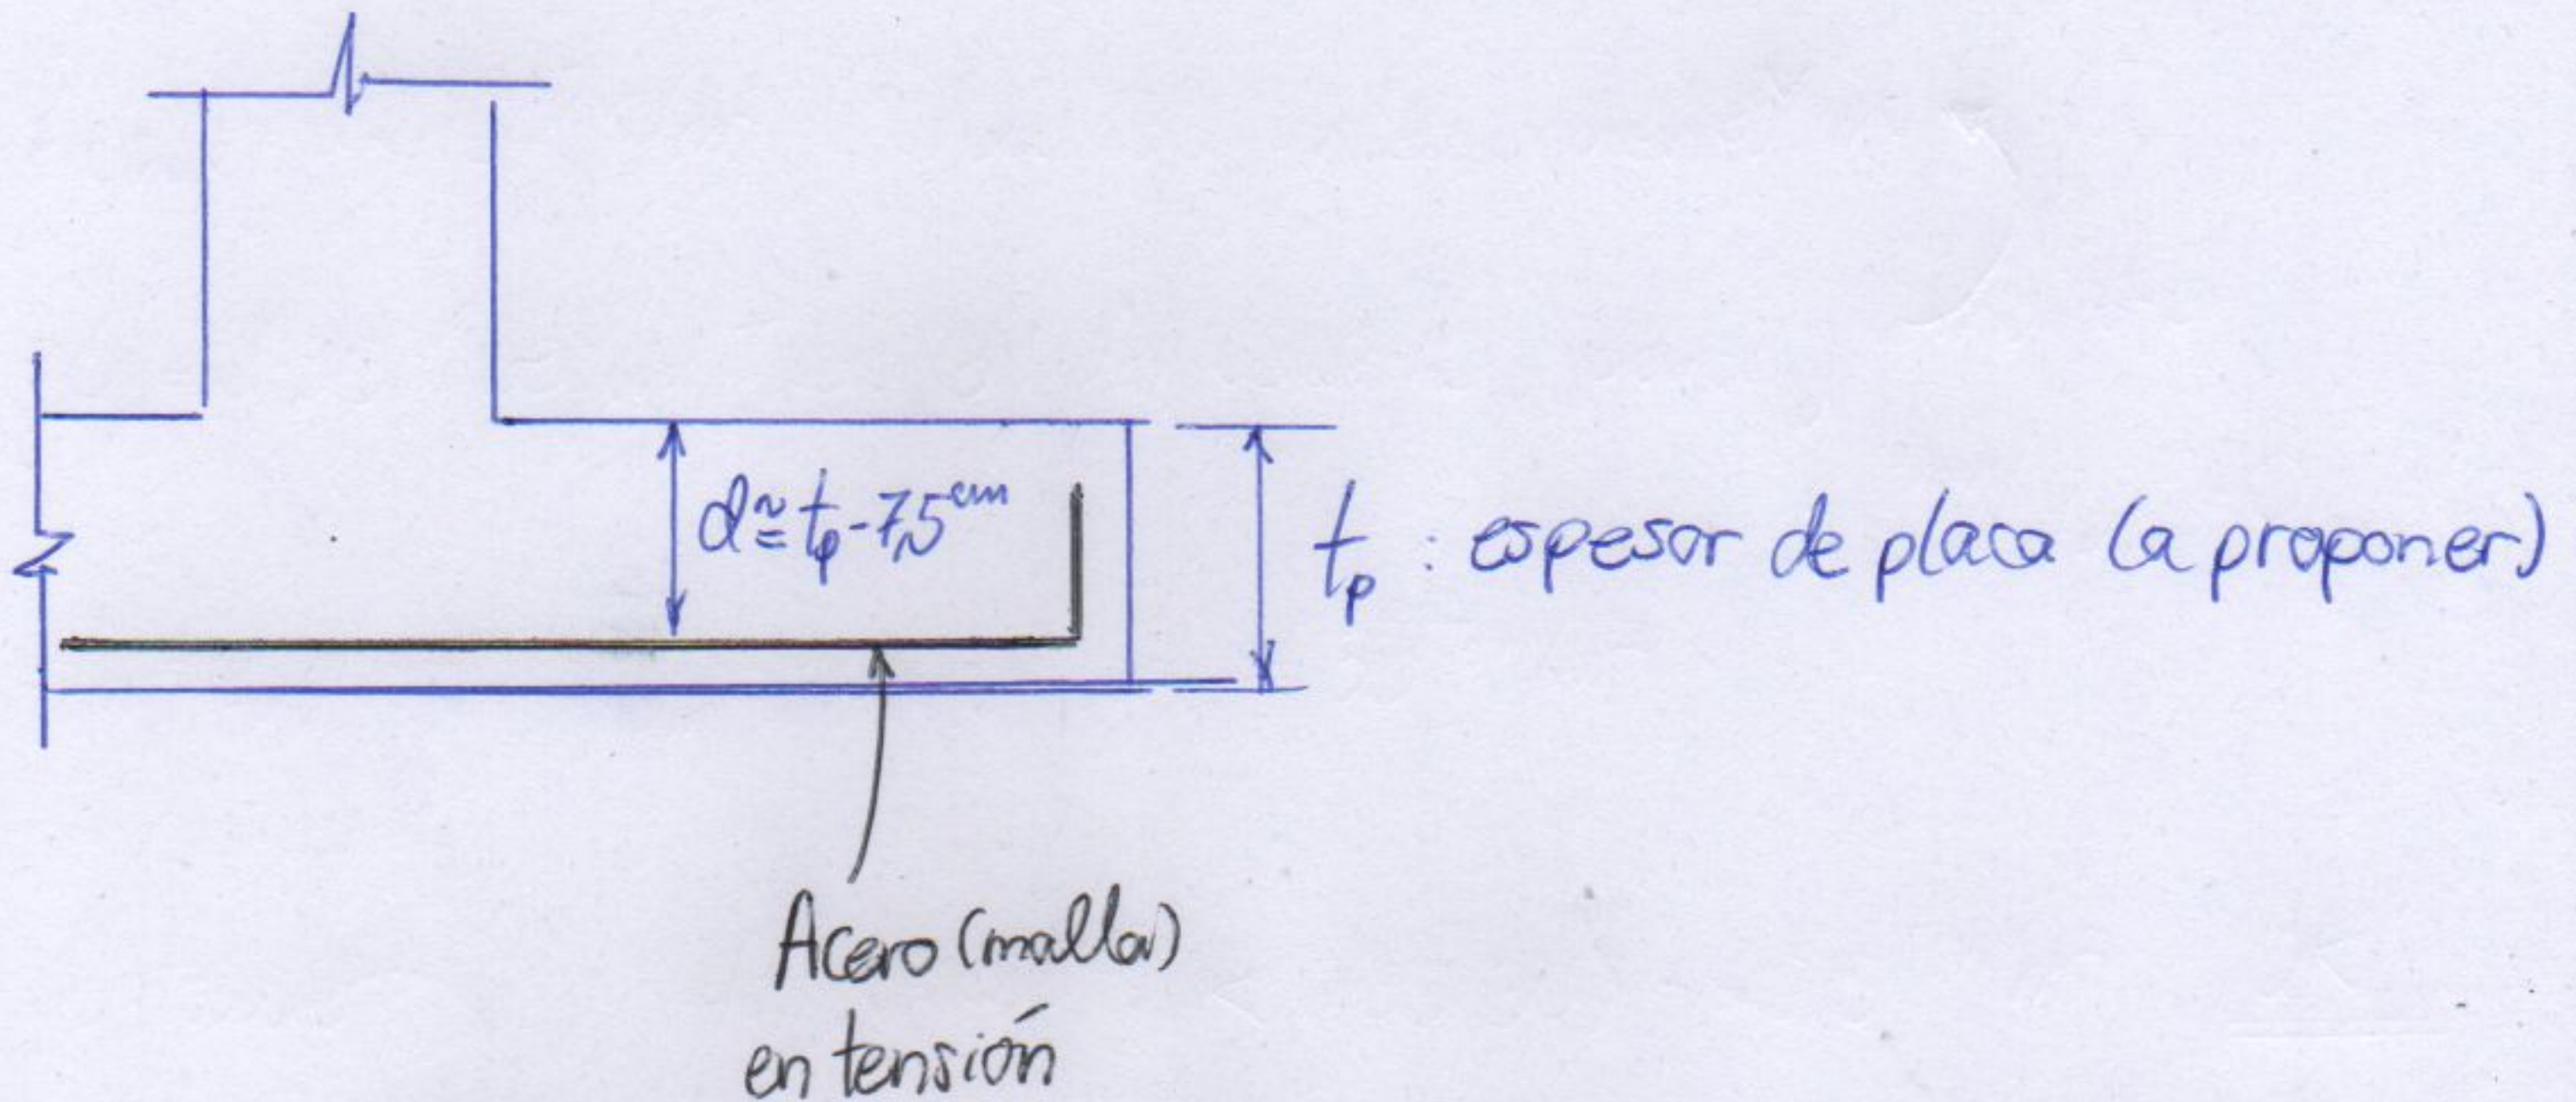 d ≈ tp - 7,5 cm
tp : espesor de placa (a proponer)
Acero (malla)
en tensión